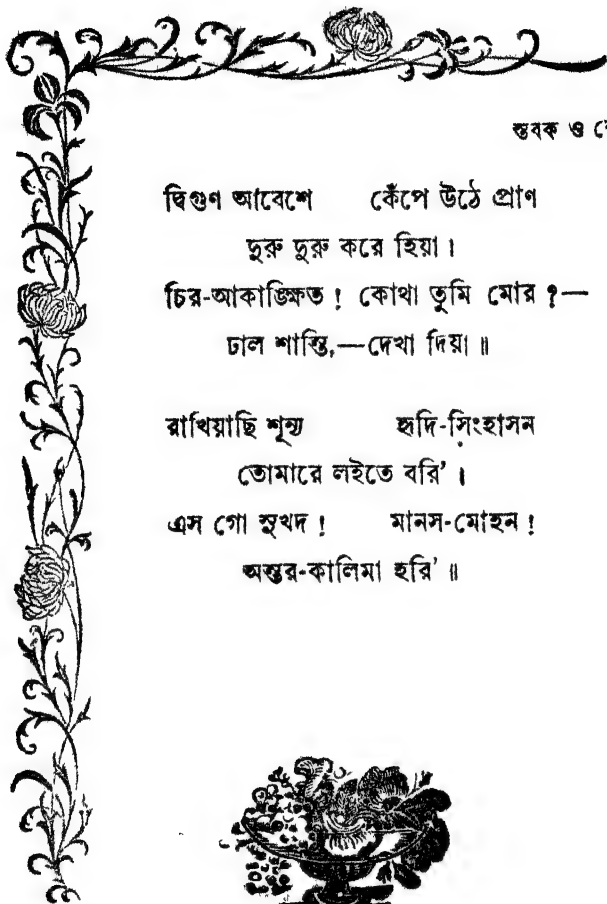 স্তবক ও
দ্বিগুণ আবেশে কেঁপে উঠে প্রাণ
দুরু দুরু করে হিয়া।
চির-আকাঙ্ক্ষিত ! কোথা তুমি মোর ?—
ঢাল শান্তি,—দেখা দিয়া ॥
রাখিয়াছি শূন্য হৃদি-সিংহাসন
তোমারে লইতে বরি’ ।
এস গো সুখদ ! মানস-মোহন !
অন্তর-কালিমা হরি’ ॥